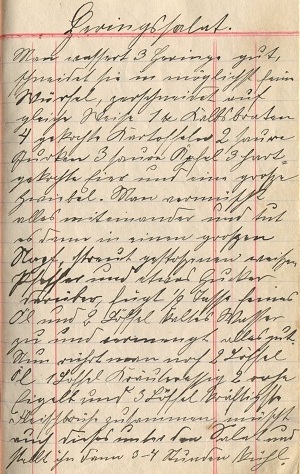 Heringssalat.
Man wässert 3 Heringe gut,
schneidet sie in möglichst feine
Würfel, zerschneidet auf
gleiche Weise 1 ℔ Kalbsbraten
4 gekochte Kartoffeln 2 saure
Gurken 3 saure Äpfel 3 hart-
gekochte Eier und eine große
Zwiebel. Man vermischt
alles miteinander und tut
es dann in einen großen
Napf, streut gestoßenen weißen
Pfeffer und etwas Zucker
darüber, fügt Tasse feines
Öl und 2 Löffel kaltes Wasser
zu und vermengt alles gut.
Nun rührt man noch 2 Löffel
Öl Kräuteressig 2 rohe
Eigelb und 3 Löffel kräftigste
Fleischbrühe zusammen, mischt
auch dieses unter den Salat und
stellt ihn dann 3-4 Stunden kühl